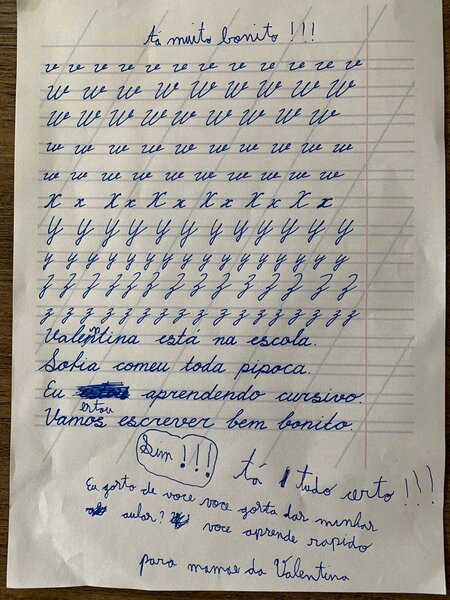 tá muito bonito !!!
v v v v v v v v v v v v v
W W W W W W W W W
W W W W W W W W W
w w w w w w w w w w w
w w w w w w w w w w
X x X x X x X x X x X x
Y Y Y Y Y Y Y Y Y Y Y Y
y y y y y y y y y y y y y y
Z Z Z Z Z Z Z Z Z Z Z Z Z
z z z z z z z z z z z z z z z z z
Valentina está na escola.
Sofia comeu toda pipoca.
Eu estou aprendendo cursivo.
Vamos escrever bem bonito.
Sim!!!
tá tudo certo!!!
Eu gosto de voce voce gosta das minhas
aulas? voce aprende rapido
para mamae da Valentina